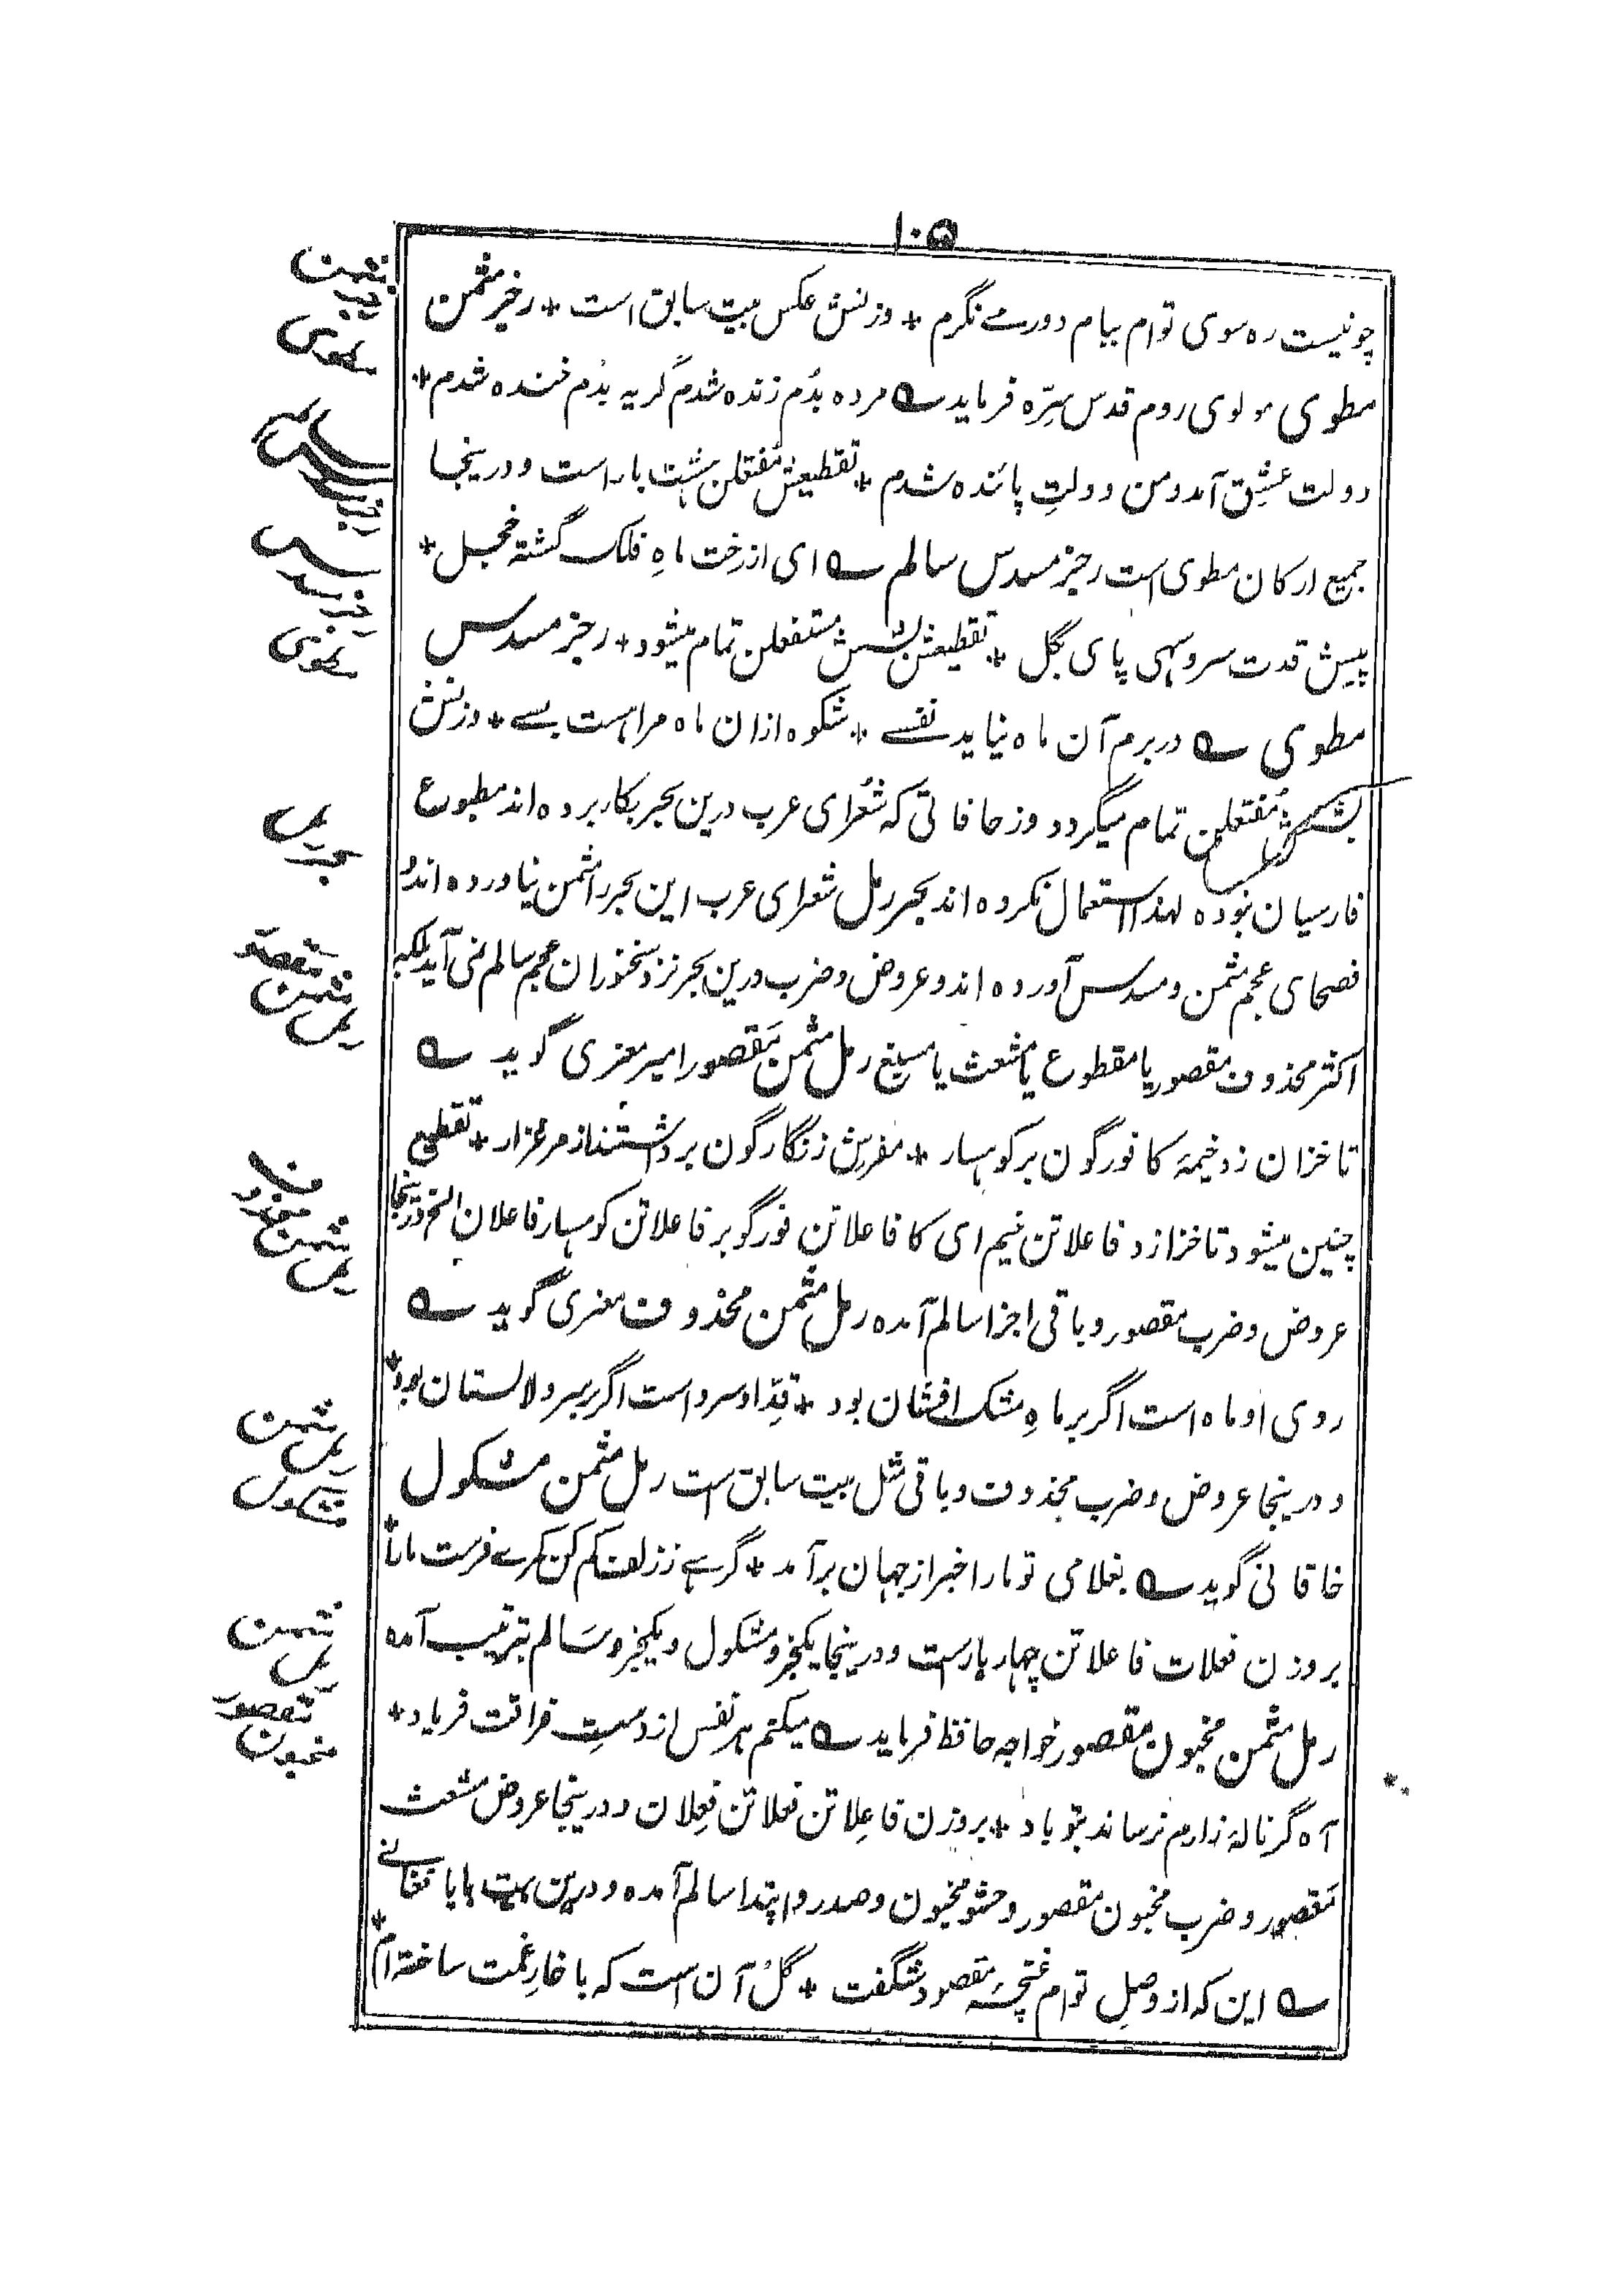 ۱۰۵
چو نیست ره سوی توام ببام دور مے نگرم * وزنش عکس بیت سابق است * رجز مثمن
مطوی مولوی روم قدس سِرّه فرماید ؎ مرده بُدم زنده شدم گریه بُدم خنده شدم *
دولت عشِق آمد و من دولتِ پائنده شدم * تقطیعش مُفتعلن هشت بار است و درینجا
جمیع ارکان مطوی است رجز مسدس سالم ؎ ای از رخت ماهِ فلک گشته خجل *
پیش قدت سرو سهی پای بگل * تقطیعش بشش مستفعلن تمام میشود * رجز مسدس
مطوی ؎ در برم آن ماه نیاید نفسے * شکوه ازان ماه مراهست بسے * وزنش
بشش مُفتعلن تمام میگردد و زحافاتی که شُعرای عرب درین بحر بکار برده اند مطبوع
فارسیان نبوده لهذا استعمال نکرده اند بحر رمل شعرای عرب این بحر را مثمن نیاورده اند و
فصحای عجم مثمن و مسدس آورده اند و عروض و ضرب درین بحر نزد سخنوران عجم سالم نمی آید بلکه
اکثر محذوف مقصور یا مقطوع یا مشعث یا مسبغ رمل مثمن مَقصور امیر معزی گوید ؎
تا خزان زد خیمۀ کافورگون بر کوهسار * مفرش زنگارگون برداشتند از مرغزار * تقطیع
چنین میشود تا خزازد فاعلاتن خیم ای کا فاعلاتن فورگو بر فاعلاتن کوهسار فاعلان الخ و درینجا
عروض و ضرب مقصور و باقی اجزا سالم آمده رمل مثمن محذوف معزی گوید ؎
روی او ماه است اگر بر ماهِ مشک افشان بود * قدِّ او سرو است اگر بر سرو لالستان بود *
و درینجا عروض و ضرب محذوف و باقی مثل بیت سابق است رمل مثمن مشکول
خاقانی گوید ؎ بغلامی تو مارا خبر از جهان برآمد * گرهے ز زلف کم کن کمرے فرست مارا *
بروزن فعلات فاعلاتن چهار بارست و درینجا یکجزو مشکول و یکجزو سَالم بترتیب آمده
رمل مثمن مخبون مقصور خواجه حافظ فرماید ؎ میکنم هر نفس از دستِ فراقت فریاد *
آه گر نالۀ زارم نرساند بتو باد * بروزن فاعِلاتن فعلاتن فعِلان و درینجا عروض مشعث
مَقصور و ضرب مخبون مقصور و حشو مخبون و صدر و ابتدا سالم آمده و درین بیت بابا فغانے
؎ این که از وصلِ توام غنچۂ مَقصود شگفت * گُل آن است که با خارِ غمت ساخته ام *
مثمن
رجز
مطوی
سالم
مسدس
رجز
مسدس
رجز
مطوی
رمل
بحر
مقصور
مثمن
رمل
محذوف
مثمن
رمل
مثمن
رمل
مشکول
مثمن
رمل
مقصور
مخبون